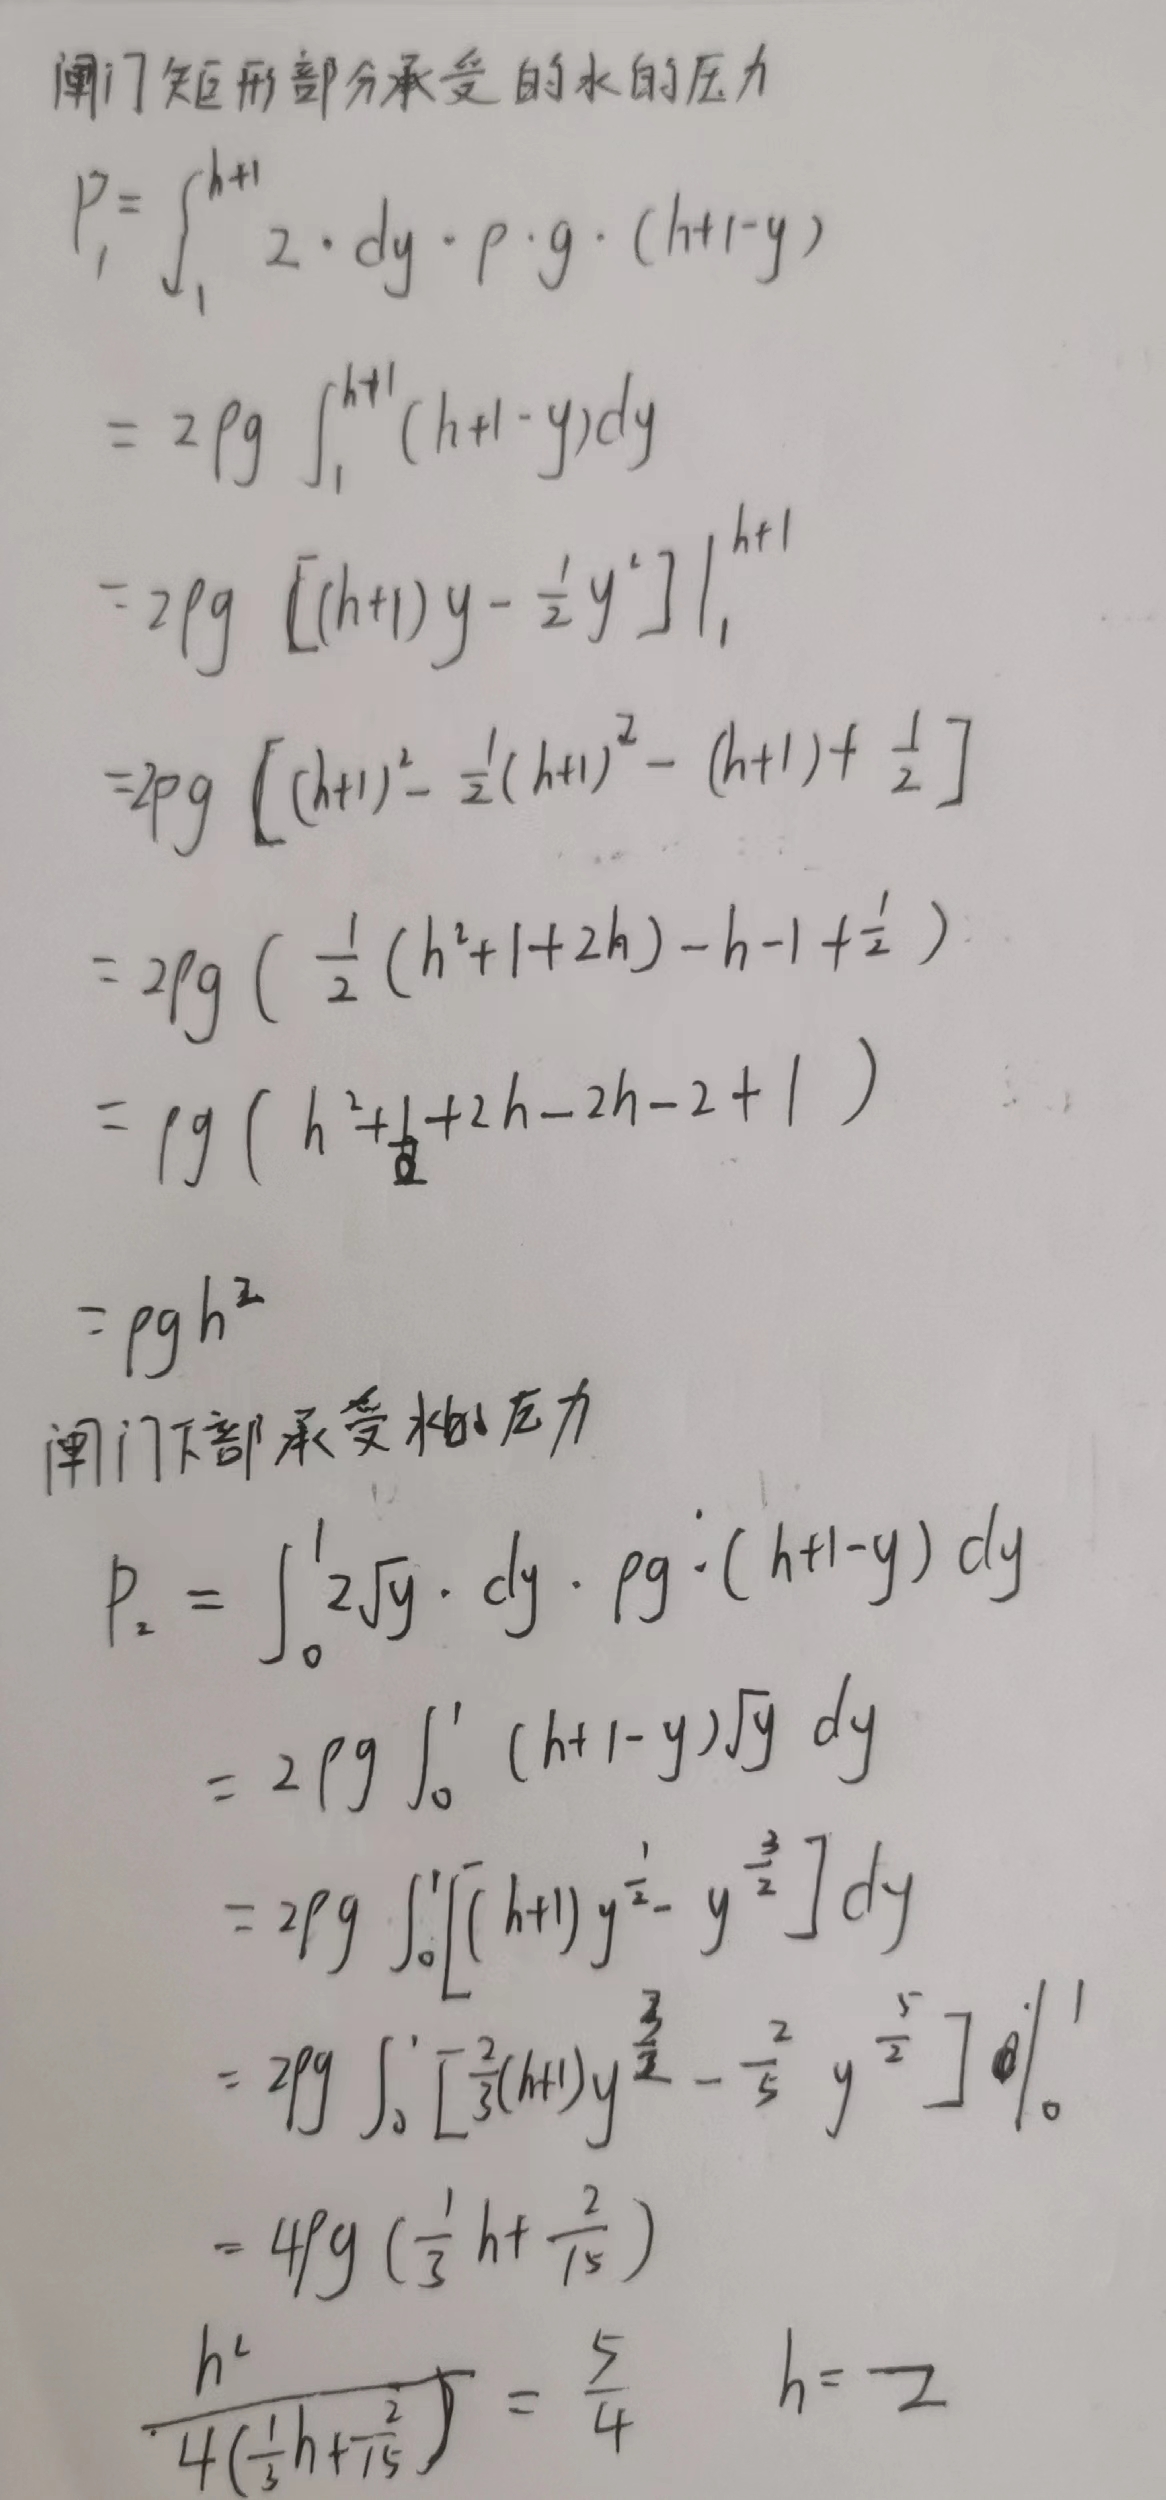 闸门矩形部分承受的水的压力
P₁=∫₁^{h+1} 2·dy·ρ·g·(h+1-y)
=2ρg ∫₁^{h+1}(h+1-y)dy
=2ρg [(h+1)y-½y²]|₁^{h+1}
=2ρg [(h+1)²-½(h+1)²-(h+1)+½]
=2ρg(½(h²+1+2h)-h-1+½)
=ρg(h²+1+2h-2h-2+1)
=ρgh²
闸门下部承受水的压力
P₂=∫₀¹2√y·dy·ρg·(h+1-y)dy
=2ρg∫₀¹(h+1-y)√y dy
=2ρg∫₀¹[(h+1)y^{1/2}-y^{3/2}]dy
=2ρg∫₀¹[⅔(h+1)y^{3/2}-⅖y^{5/2}]|₀¹
=4ρg(⅓h+2/15)
h²/4(⅓h+2/15)=5/4 h=2